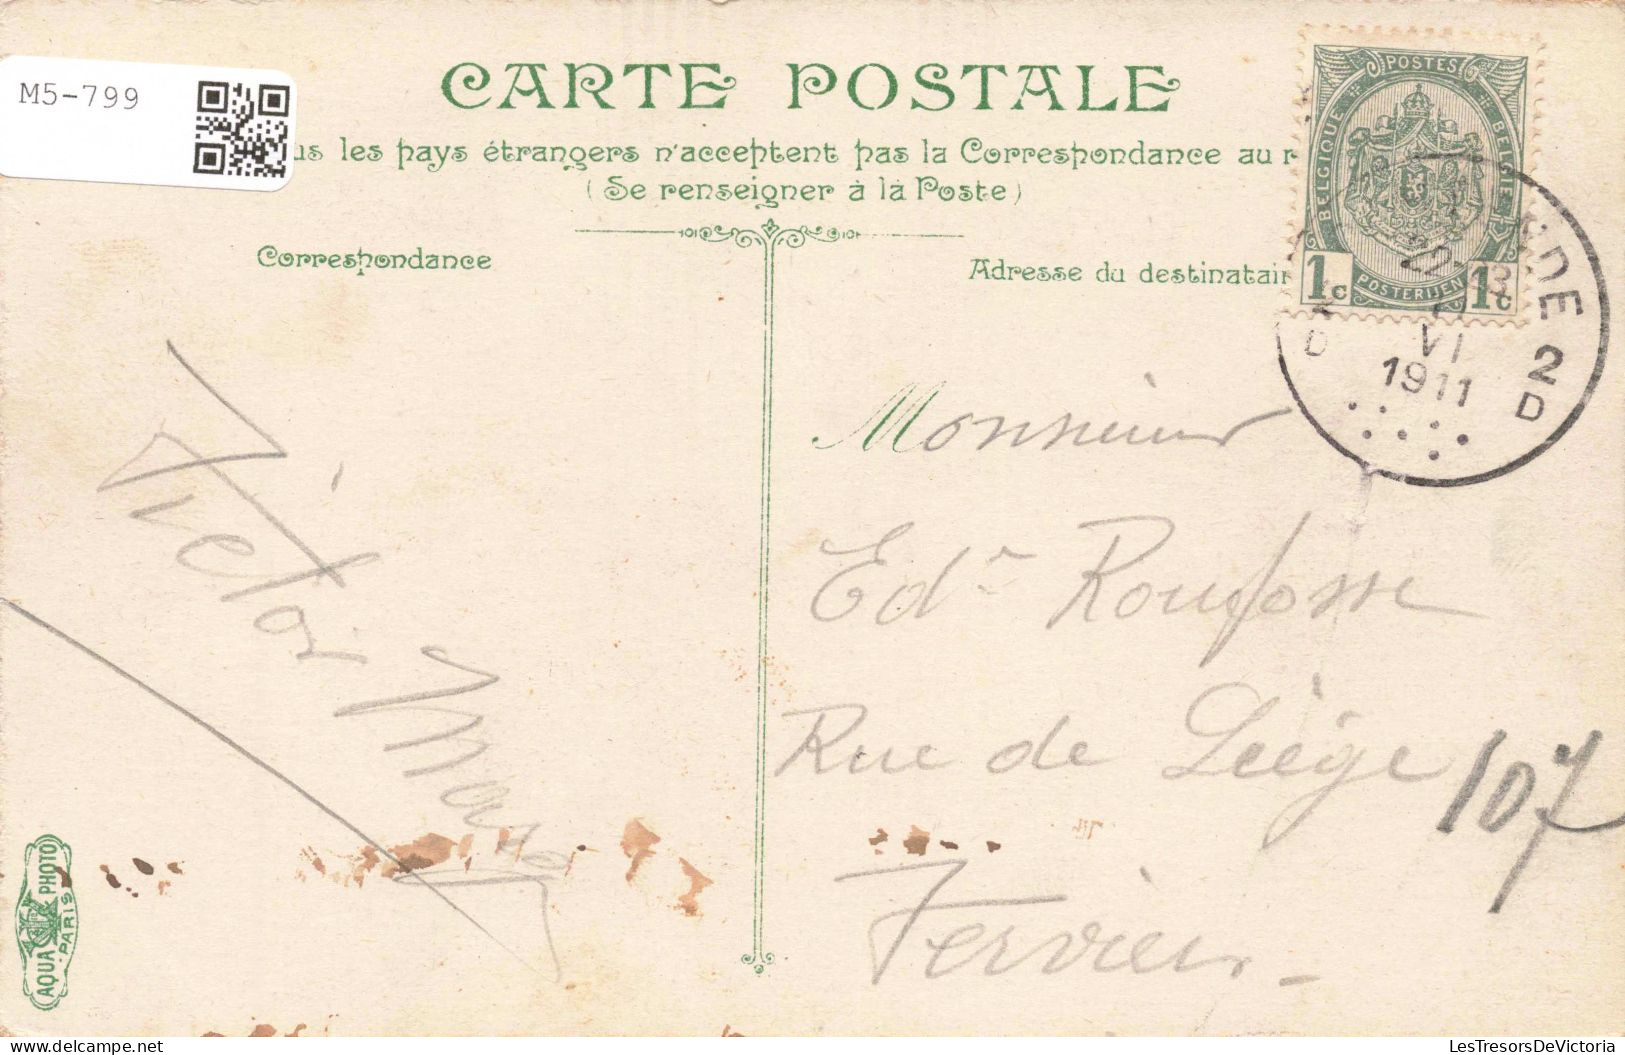 M5-799
CARTE POSTALE
us les pays étrangers n'acceptent pas la Correspondance au r
(Se renseigner à la Poste)
Correspondance
Adresse du destinatair
POSTES
BELGIQUE
BELGIE
POSTERIJEN
1c
1c
NDE 2
22-23
VI
1911
D
D
Victor
Monsieur
Edr Roufosse
Rue de Liège 107
Verviers
AQUA PHOTO
PARIS
LesTresorsDeVictoria